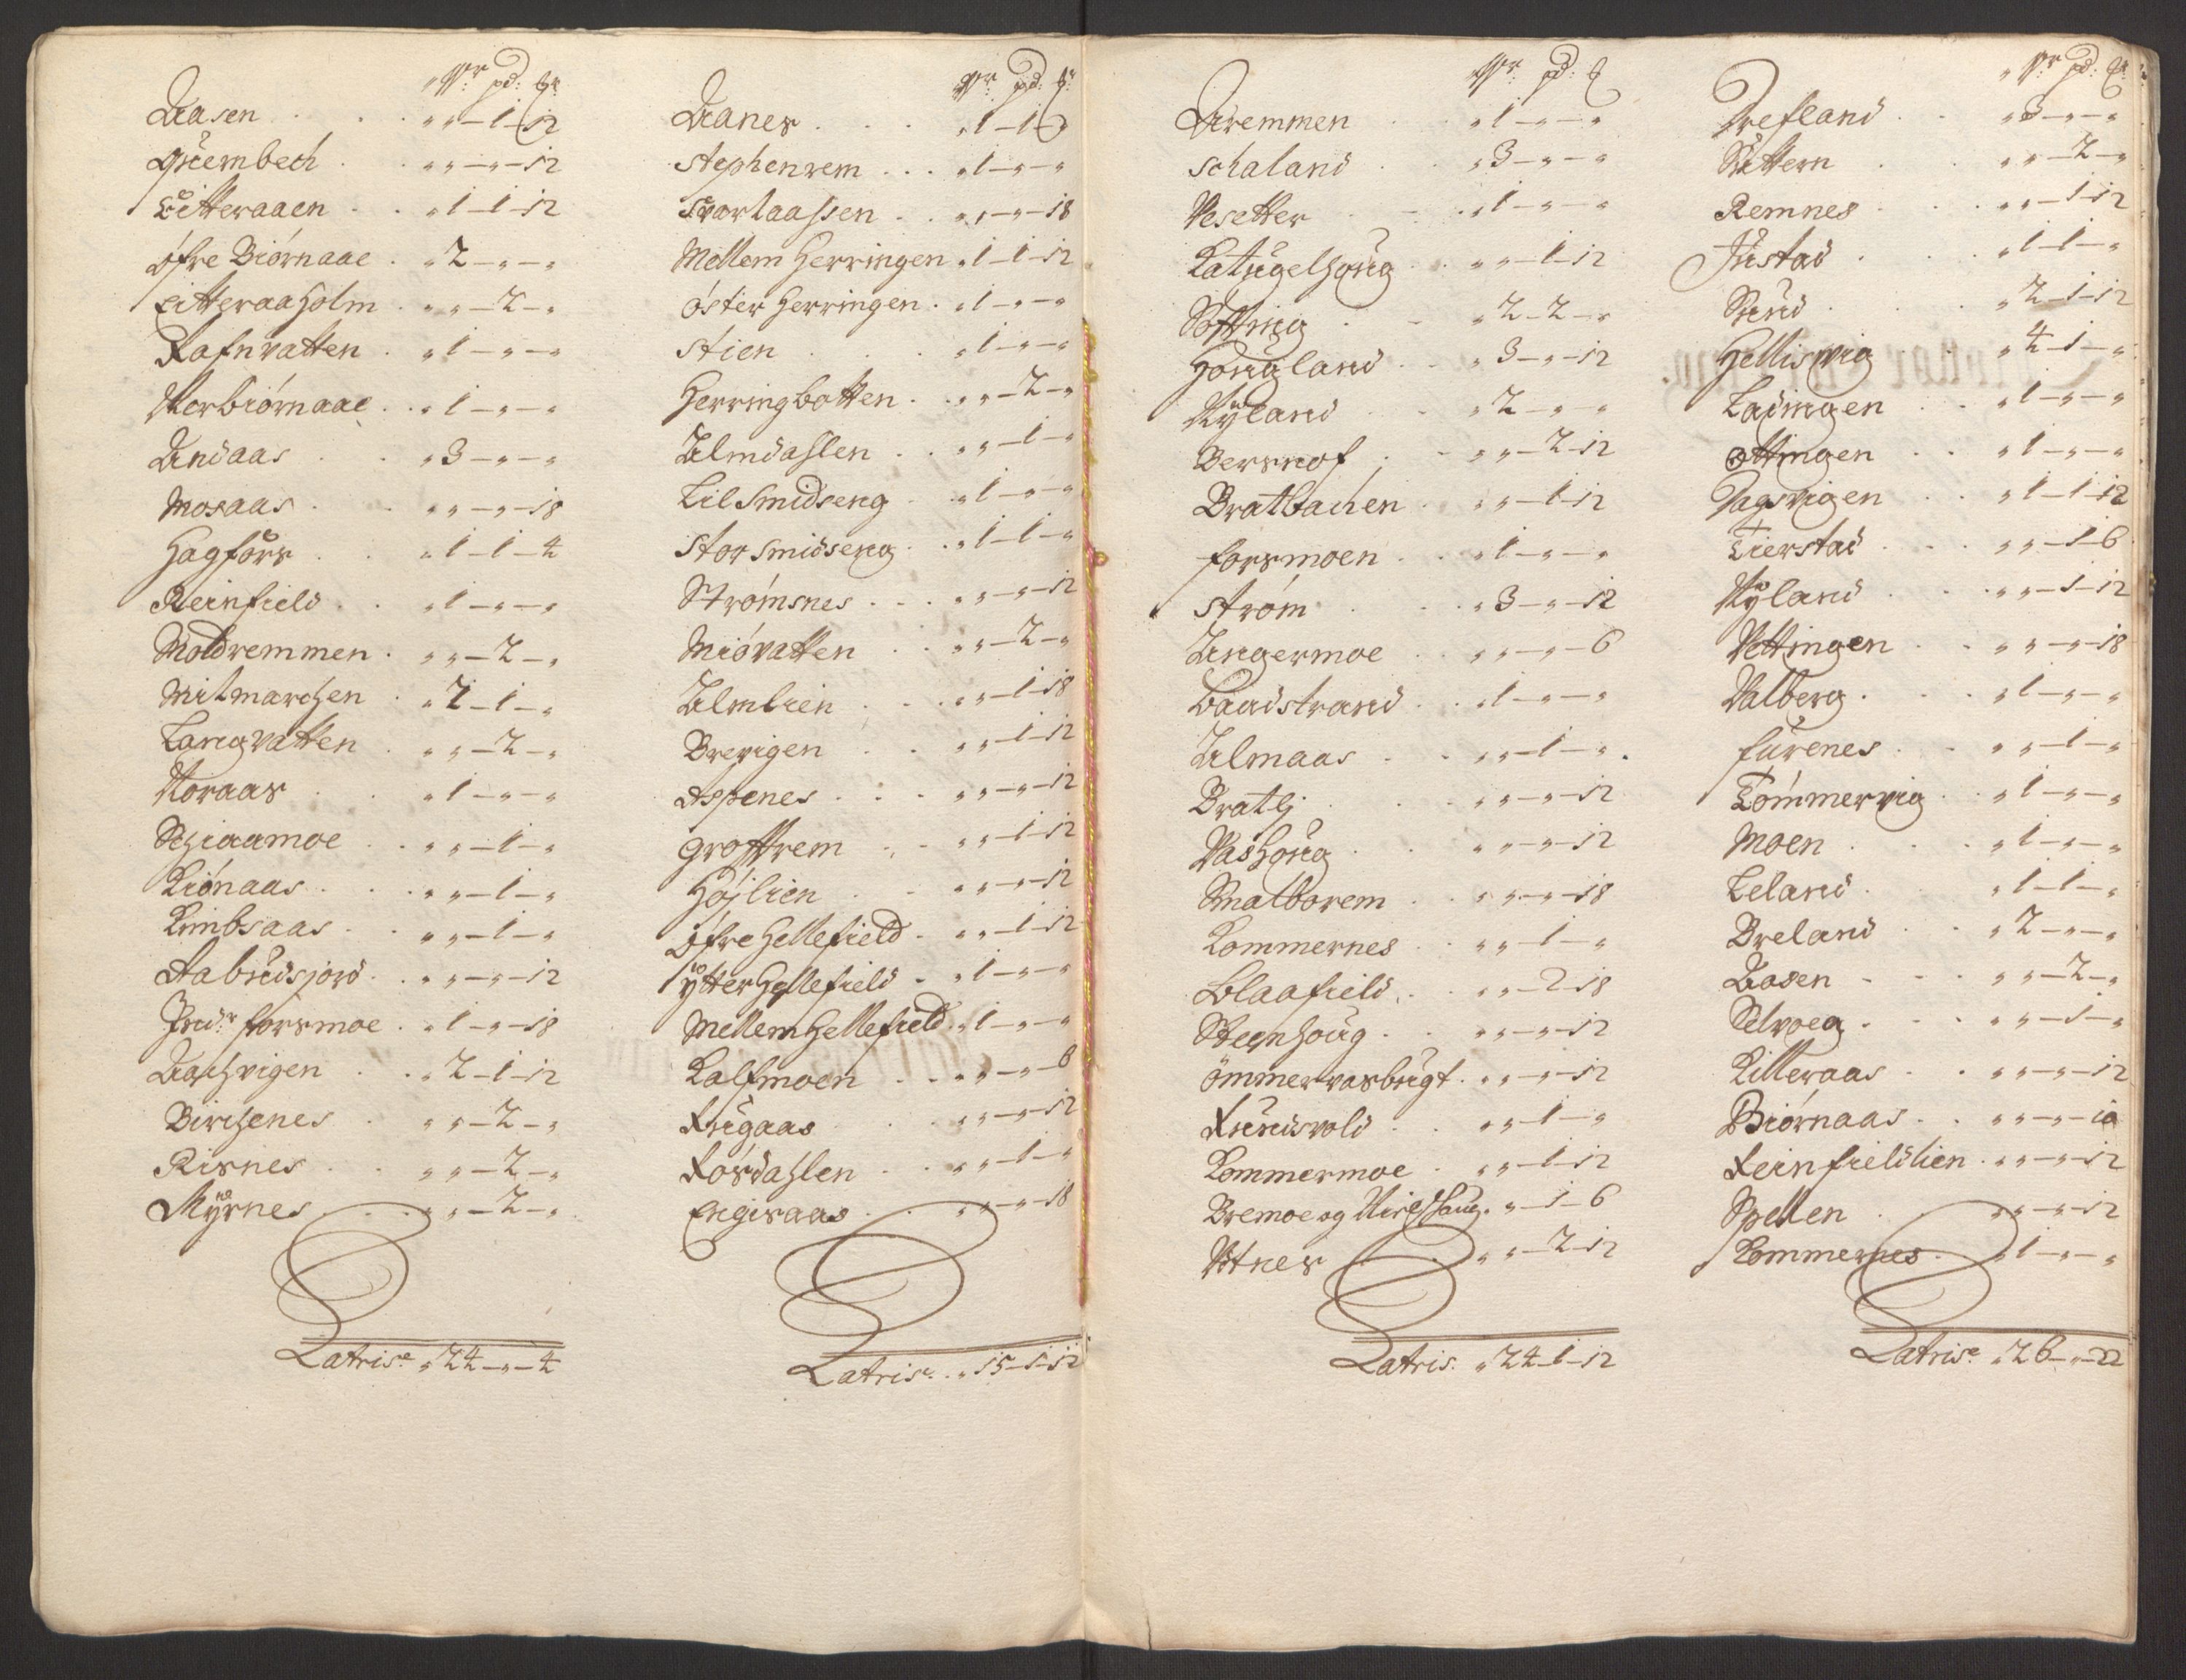 Vr pd: ℔
Aasen . . . „ „ – 1 – 12
Quembech . . „ „ – „ – 12
Litteraaen . . „ 1 – 1 – 12
Øfre Biørnaae . „ 2 – „ – „
Litteraaholm . „ „ – 2 – „
Rafnvatten . „ 1 – „ – „
Norbiørnaae . „ 1 – „ – „
Andaas . . „ 3 – „ – „
Mosaas . . „ „ – „ – 18
Hagfors . . „ 1 – 1 – 4
Reinfield . . „ 1 – „ – „
Moldremmen . „ „ – 2 – „
Mitmarchen . „ 2 – 1 – „
Langvatten . „ „ – 2 – „
Noraas . . „ 1 – „ – „
Schiaamoe . . „ „ – 1 – „
Kiønaas . . . „ „ – 1 – „
Kimbsaas . . „ „ – 1 – „
Aabudsjord . . „ „ – „ – 12
Indr forsmoe . „ 1 – „ – 18
Aaschvigen . . „ 2 – 1 – 12
Birchenes . „ „ – 2 – „
Risnes . . „ „ – 2 – „
Myrnes . . . „ „ – 2 – „
Latris: „ 24 – „ – 4
Vr pd: ℔
Aanes . . . „ 1 – 1 – „
Stephenrem . . . „ 1 – „ – „
Svartaassen . . „ „ – „ – 18
Mellem Herringen „ 1 – 1 – 12
Øster Herringen . „ 1 – „ – „
Stien . . . „ 1 – „ – „
Herringbotten . . „ „ – 2 – „
Almdahlen . . „ „ – 1 – „
Lil Smidseng . „ 1 – „ – „
Stor Smidseng . . „ 1 – 1 – „
Strømsnes . . . „ „ – „ – 12
Miøvatten . . „ „ – 2 – „
Almlien . . . „ „ – 1 – 18
Brevigen . . „ „ – 1 – 12
Aspenes . . . „ „ – „ – 12
Groffrem . . „ „ – 1 – 12
Højlien . . „ „ – „ – 12
Øfre Hellefield . „ „ – 1 – 12
Ytter Hellefield . „ 1 – „ – „
Mellem Hellefield . „ 1 – „ – „
Kalfmoen . . „ „ – „ – 6
Rugaas . . „ „ – „ – 12
Røsdahlen . . „ „ – 1 – „
Engisaas . . „ „ – „ – 18
Latris: „ 15 – 1 – 12
Vr pd: ℔
Aremmen . . „ 1 – „ – „
Schaland . . „ 3 – „ – „
Vesetter . . „ 1 – „ – „
Katugelhoug . „ „ – 1 – 12
Søfting . . „ 2 – 2 – „
Hougland . . „ 3 – „ – 12
Nyland . . „ 2 – „ – „
Bersnof . . „ „ – 2 – 12
Bratbachen . „ „ – 1 – 12
forsmoen . . „ 1 – „ – „
Strøm . . „ 3 – „ – 12
Angermoe . „ „ – „ – 6
Baadstrand . . „ 1 – „ – „
Almaas . . „ „ – 1 – „
Bratlj . . „ „ – „ – 12
Vashoug . . „ „ – „ – 12
Smalborem . . „ „ – „ – 18
Kommernes . . „ „ – 1 – „
Blaafield . . „ „ – 2 – 18
Steenhoug . . „ „ – „ – 12
Ømmervasbugt . „ „ – „ – 12
Rundsvold . . „ „ – 1 – „
Kommermoe . „ „ – 1 – 12
Bremoe og . „ – 1 – 6
Vtnes „ „ – 2 – 12
Latris: „ 24 – 1 – 12
Vr pd: ℔
Drefland . . „ 3 – „ – „
Suttern . . „ „ – 2 – „
Remnes . . „ „ – 1 – 12
Justad . . . „ 1 – 1 – „
Sund . . . „ 2 – 1 – 12
Hellisvig . „ 4 – 1 – „
Ladingen . . „ 1 – „ – „
Ottingen . . „ 1 – „ – „
Dagsvigen . . „ 1 – 1 – 12
Tierstad . . . „ „ – 1 – 6
Nyland . . „ „ – 1 – 12
Vettingen . . „ „ – „ – 18
Valberg . . . „ 1 – „ – „
furenes . . „ „ – 1 – „
Tømmervig . . „ 1 – „ – „
Moen . . . „ 1 – „ – „
Leland . . „ 1 – 1 – „
Breland . . „ 2 – „ – „
Aasen . . . „ „ – 2 – „
Selvoeg . . . „ „ – 1 – „
Killeraas . . „ „ – „ – 12
Biørnaas . . „ „ – „ – 10
Reinfieldlien . „ „ – „ – 12
Spellen . . „ „ – „ – 12
Kommernes . „ 1 – „ – „
Latris: „ 26 – „ – 22